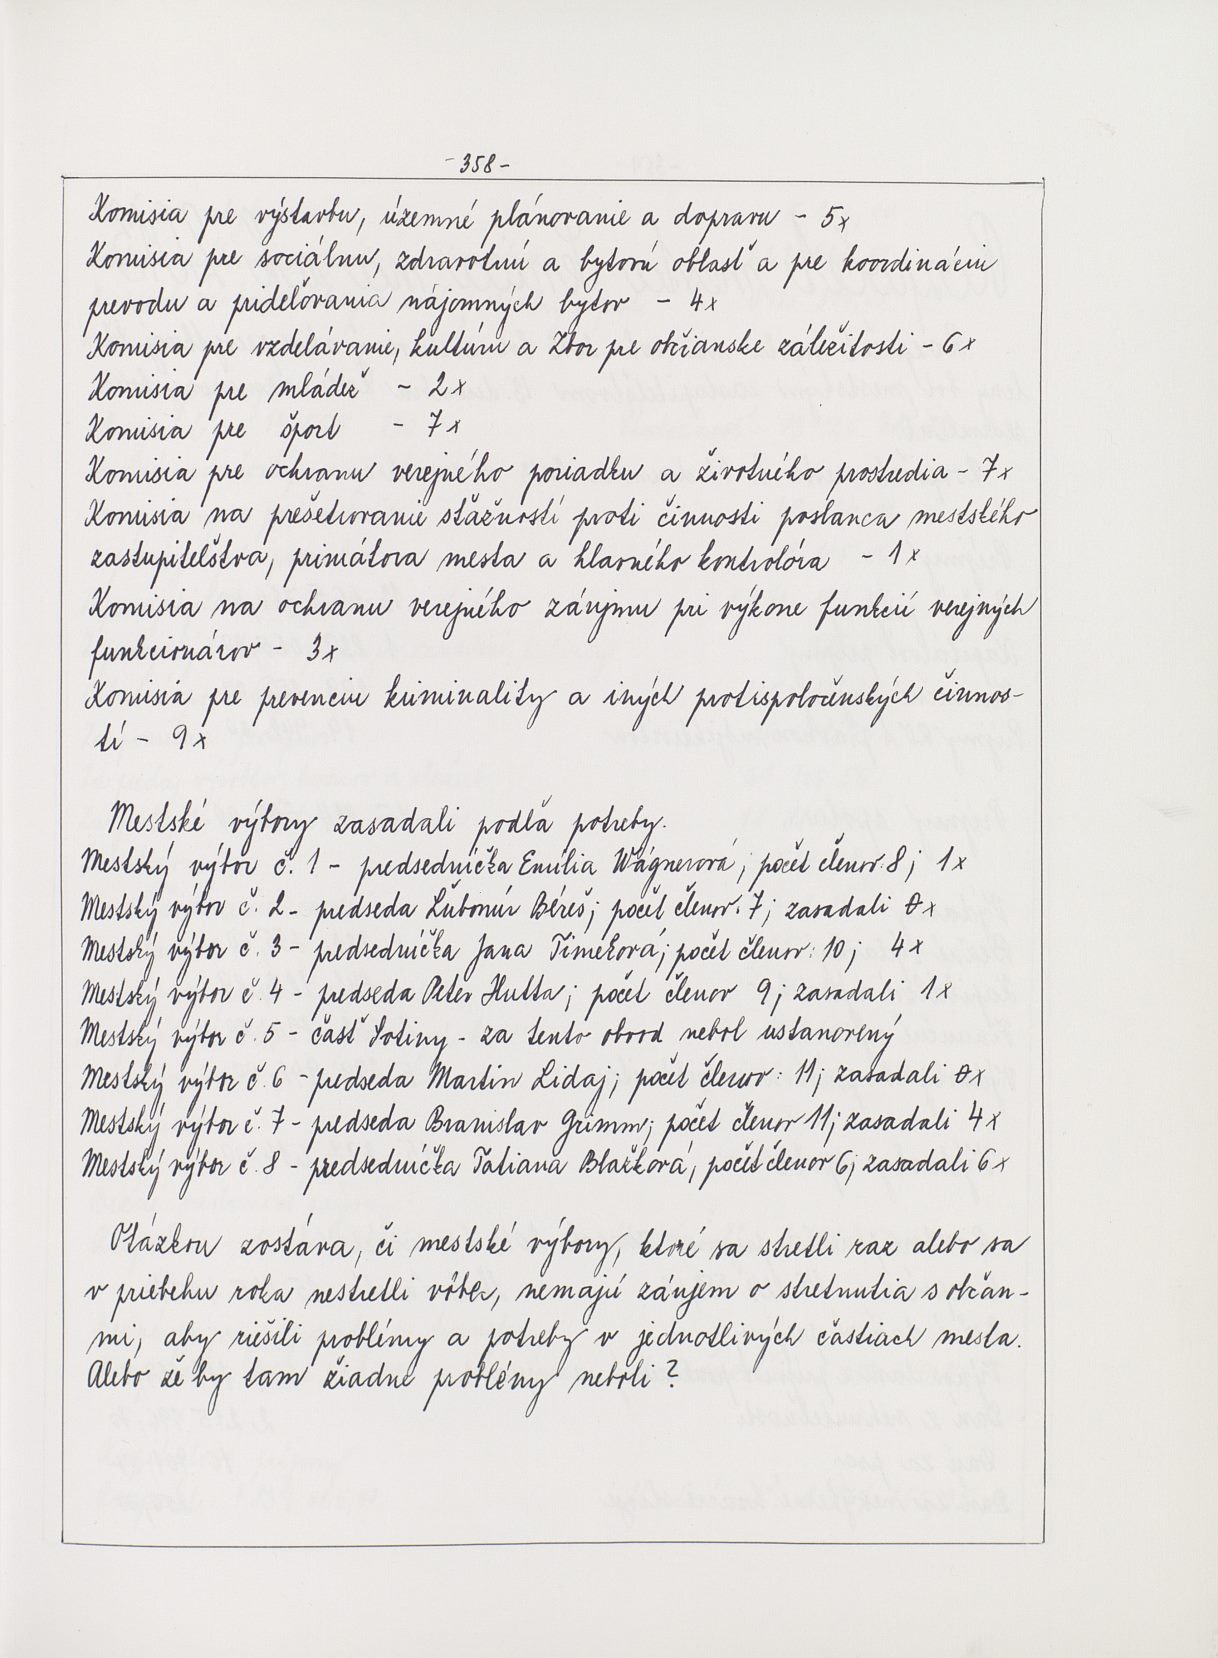 - 358 -
Komisia pre výstavbu, územné plánovanie a dopravu - 5x
Komisia pre sociálnu, zdravotnú a bytovú oblasť a pre koordináciu
prevodu a prideľovania nájomných bytov - 4x
Komisia pre vzdelávanie, kultúru a Zbor pre občianske záležitosti - 6x
Komisia pre mládež - 2x
Komisia pre šport - 7x
Komisia pre ochranu verejného poriadku a životného prostredia - 7x
Komisia na prešetrovanie sťažností proti činnosti poslanca mestského
zastupiteľstva, primátora mesta a hlavného kontrolóra - 1x
Komisia na ochranu verejného záujmu pri výkone funkcií verejných
funkcionárov - 3x
Komisia pre prevenciu kriminality a iných protispoločenských činnos-
tí - 9x
Mestské výbory zasadali podľa potreby.
Mestský výbor č. 1 - predsedníčka Emília Wágnerová; počet členov: 8; 1x
Mestský výbor č. 2 - predseda Ľubomír Béreš; počet členov: 7; zasadali 0x
Mestský výbor č. 3 - predsedníčka Jana Timeková; počet členov: 10; 4x
Mestský výbor č. 4 - predseda Peter Hutta; počet členov 9; zasadali 1x
Mestský výbor č. 5 - časť Sotiny - za tento obvod nebol ustanovený
Mestský výbor č. 6 - predseda Martin Lidaj; počet členov: 11; zasadali 0x
Mestský výbor č. 7 - predseda Branislav Grimm; počet členov 11; zasadali 4x
Mestský výbor č. 8 - predsedníčka Tatiana Blažková, počet členov 6; zasadali 6x
Otázkou zostáva, či mestské výbory, ktoré sa stretli raz alebo sa
v priebehu roka nestretli vôbec, nemajú záujem o stretnutia s občan-
mi, aby riešili problémy a potreby v jednotlivých častiach mesta.
Alebo že by tam žiadne problémy neboli?